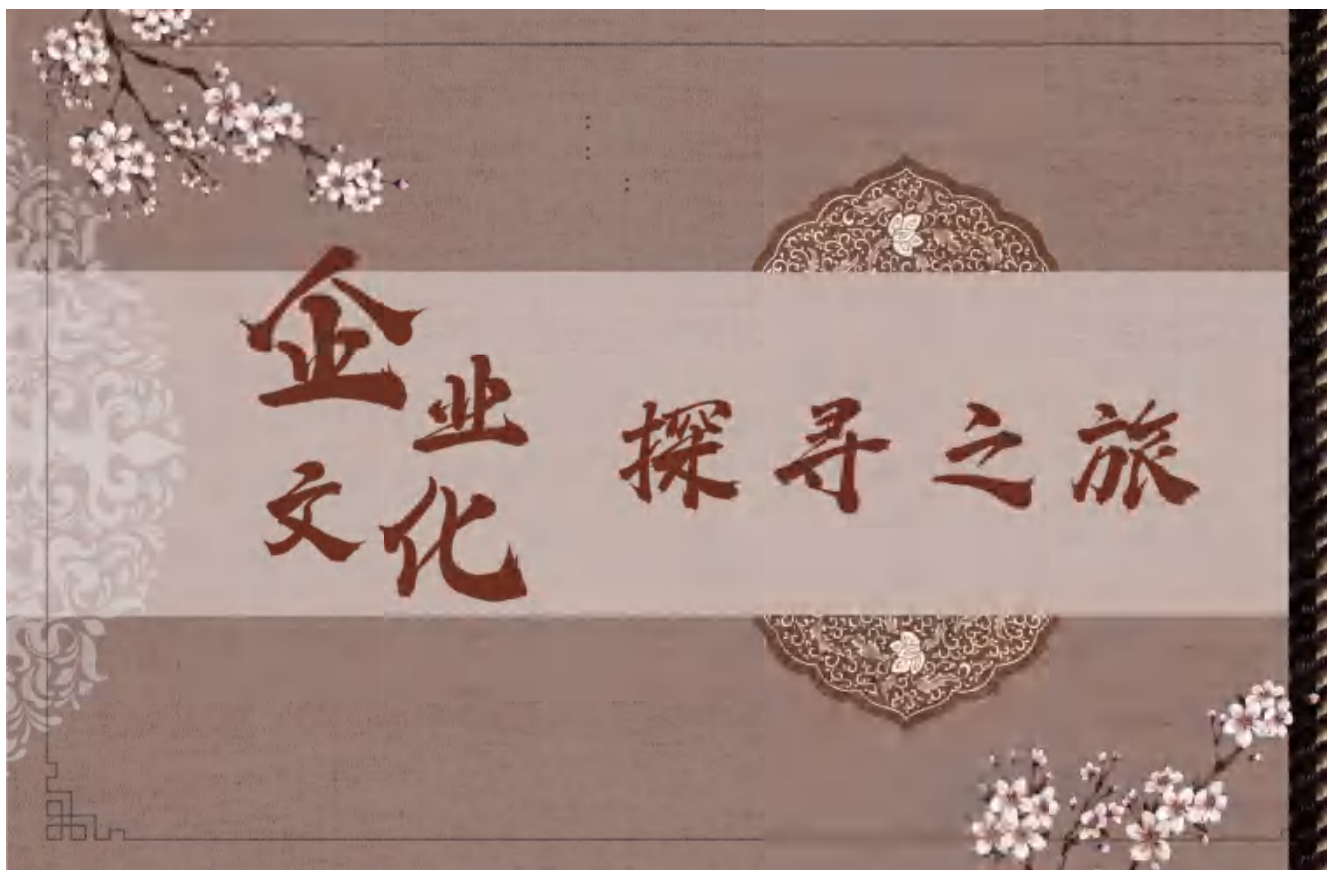 企业
文化
探寻之旅